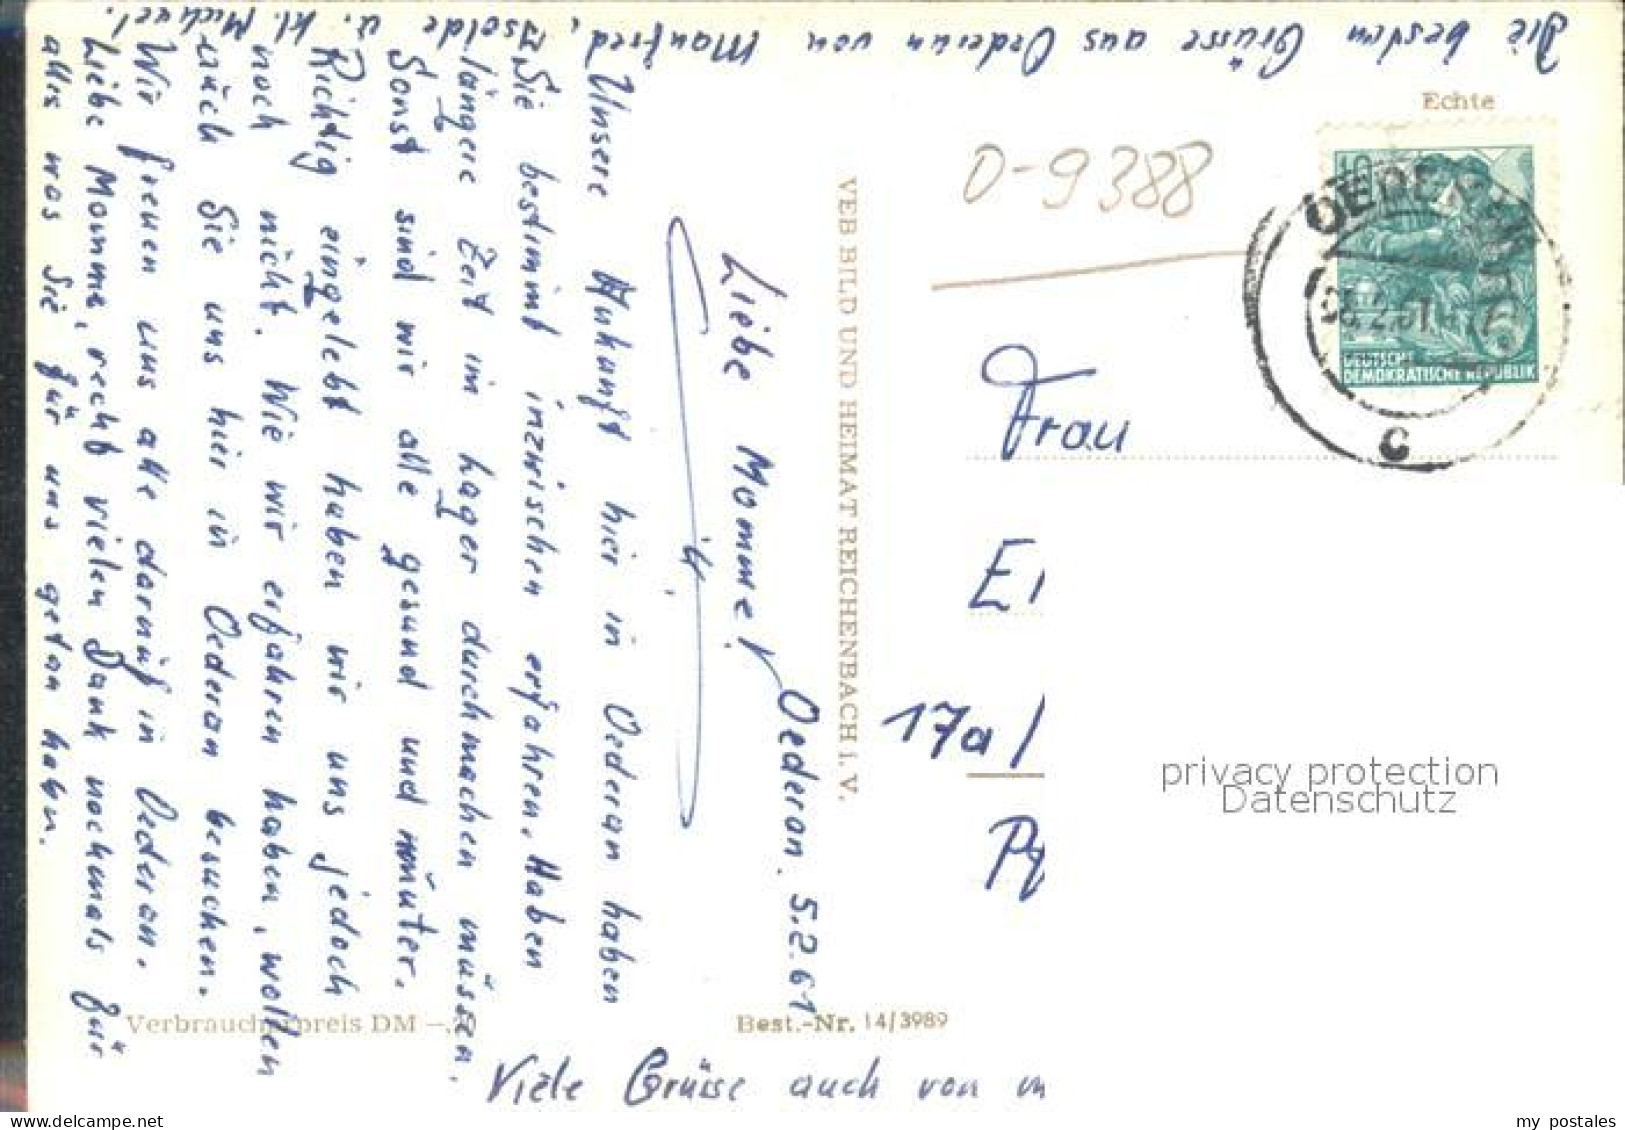 Oederan. 5.2.61
Liebe Momme!
Unsere Ankunft hier in Oederan haben
Sie bestimmt inzwischen erfahren. Haben
längere Zeit im Lager durchmachen müssen.
Sonst sind wir alle gesund und munter.
Richtig eingelebt haben wir uns jedoch
noch nicht. Wie wir erfahren haben, wollen
auch Sie uns hier in Oederan besuchen.
Wir freuen uns alle darauf in Oederan.
Liebe Momme, recht vielen Dank nochmals für
alles was Sie für uns getan haben.
Die besten Grüsse aus Oederan von Manfred, Isolde u. kl. Michael.
Viele Grüsse auch von
VEB BILD UND HEIMAT REICHENBACH i. V.
Verbraucherpreis DM –,
Best.-Nr. 14/3989
Echte
0-9388
10
DEUTSCHE
DEMOKRATISCHE REPUBLIK
OEDERAN
.2.61
c
Frau
17a/
privacy protection
Datenschutz
my postales
www.delcampe.net